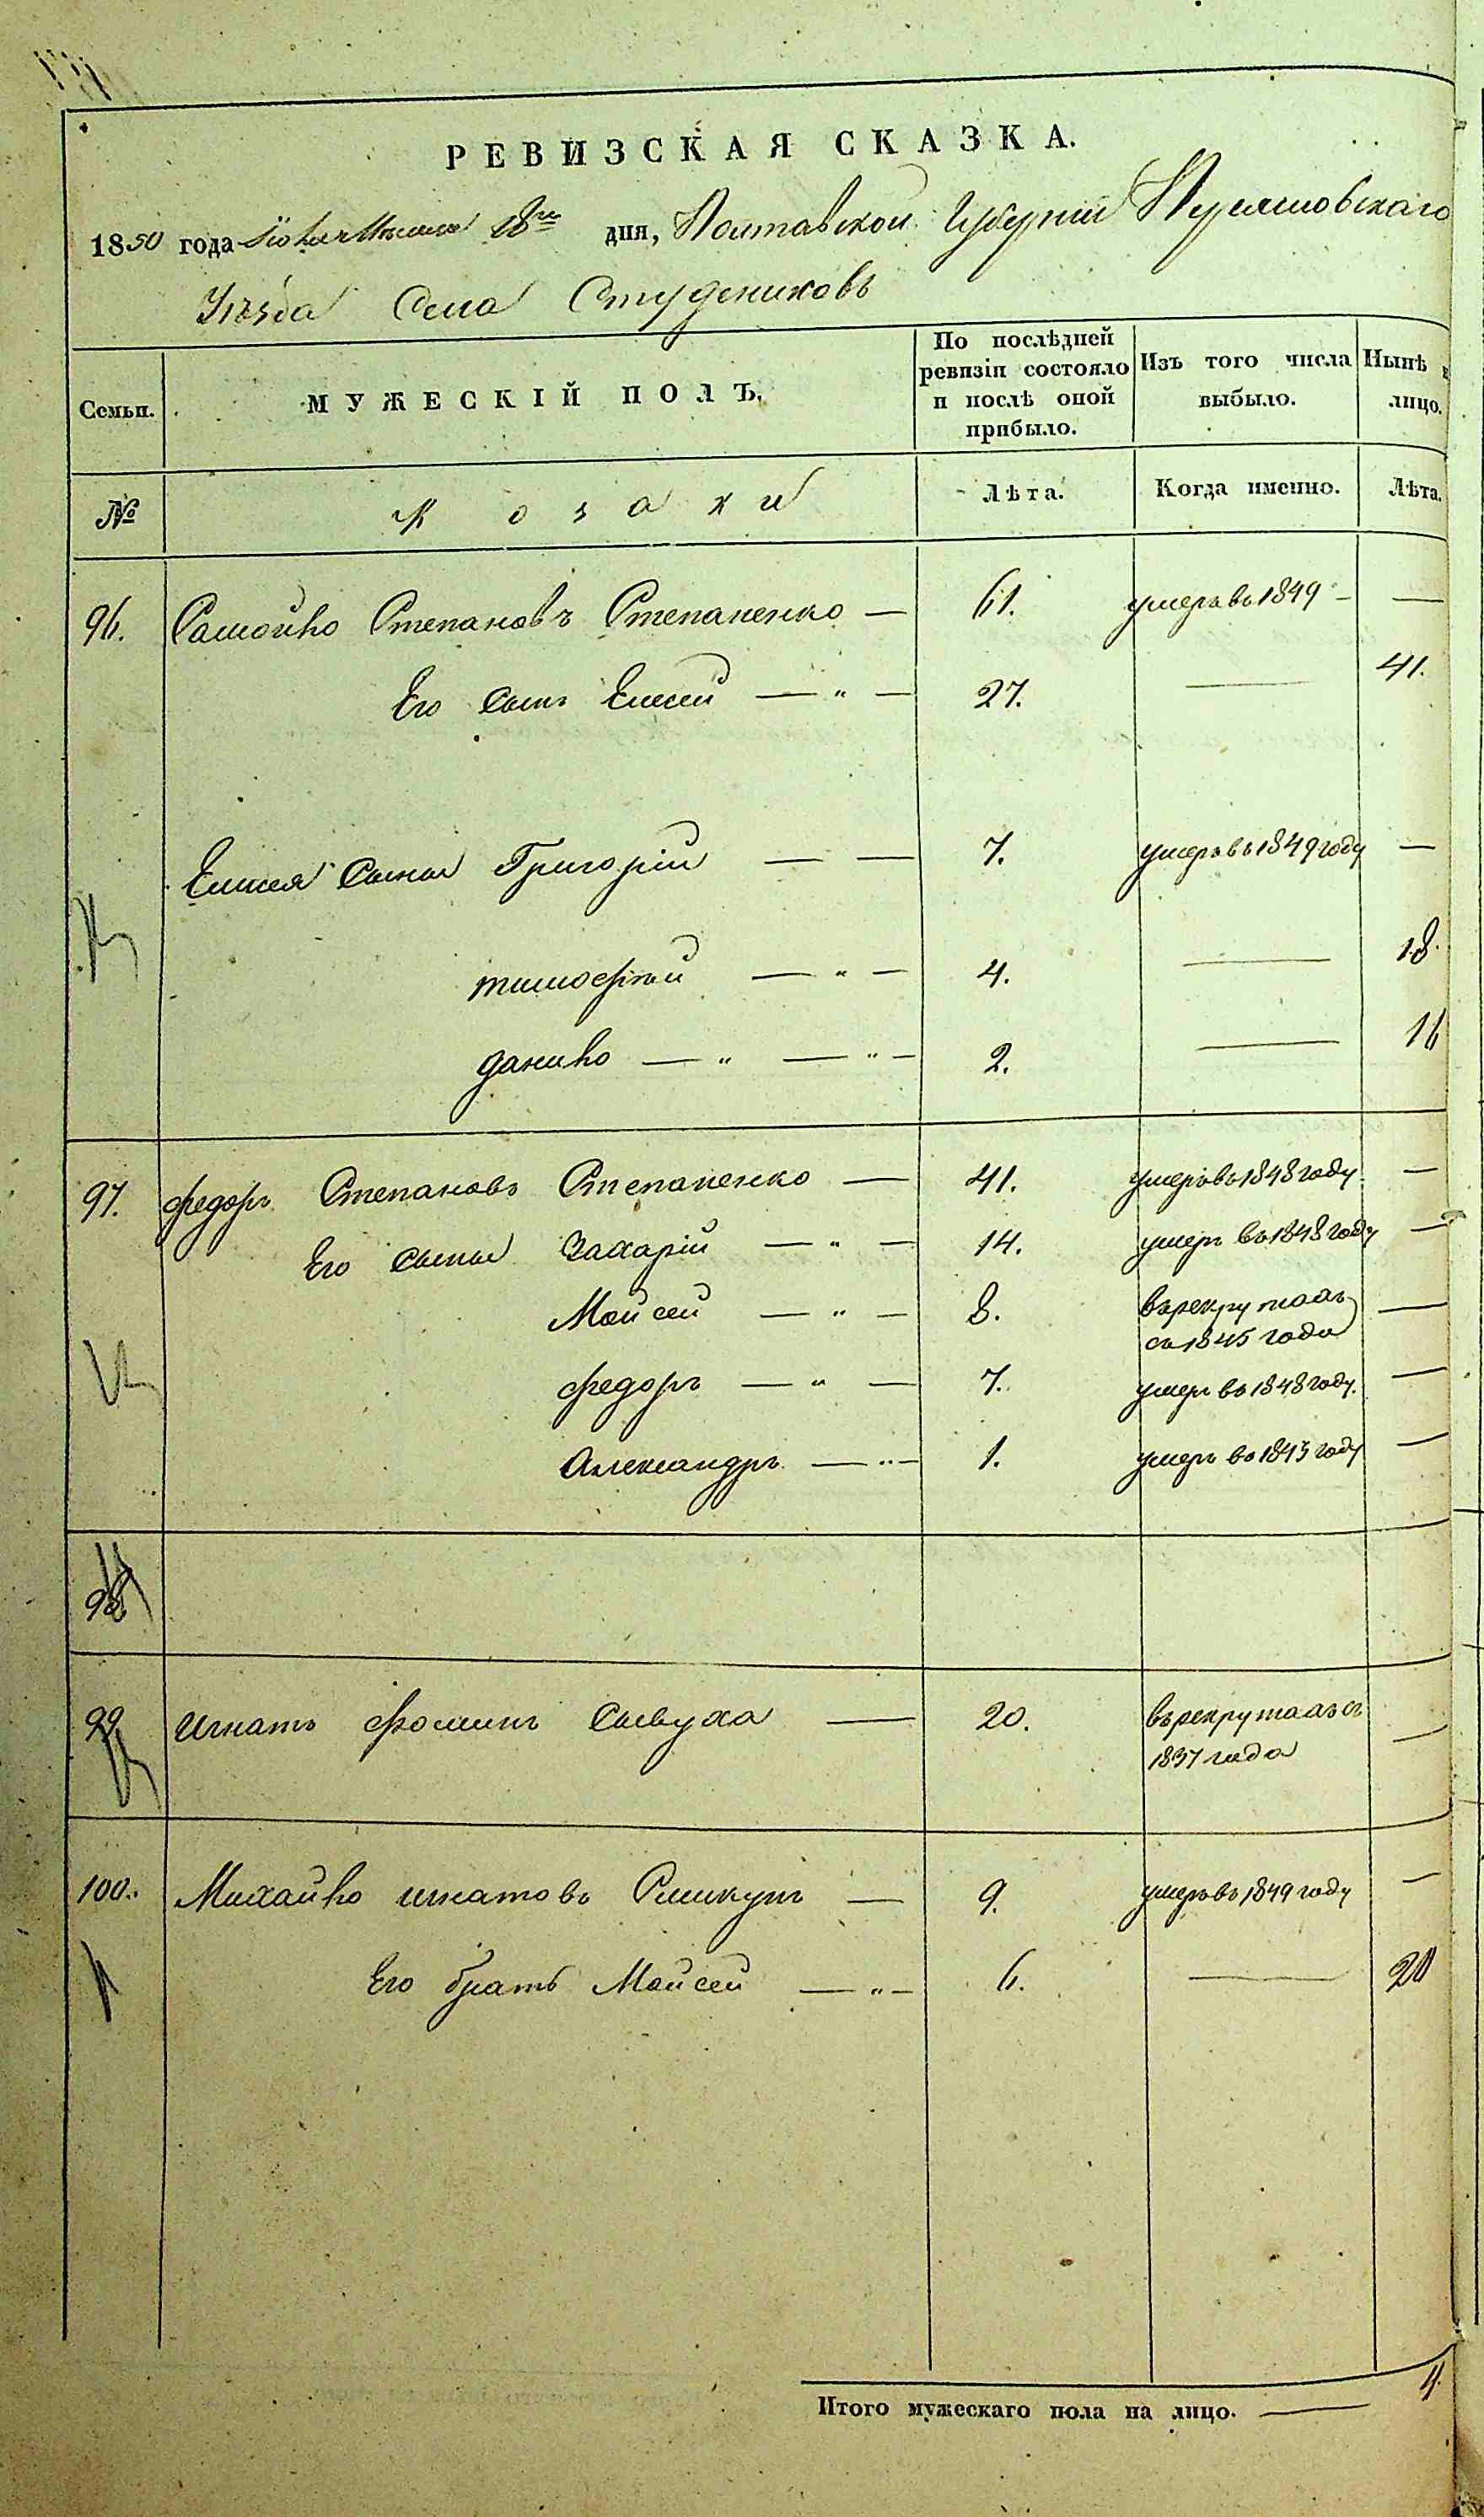 РЕВИЗСКАЯ СКАЗКА.
1850 года 18го дня, Полтавской Губерніи Переяславскаго
Уѣзда Села Студениковъ
Семьи. МУЖЕСКІЙ ПОЛЪ. По послѣдней ревизіи состояло и послѣ оной прибыло. Изъ того числа выбыло. Нынѣ лицо.
№ Козаки Лѣта. Когда именно. Лѣта.
96. Самойло Степановъ Степаненко — 61. умеръ въ 1849 — —
Его сынъ Елисей — " — 27. — 41.
Елисея сыны Григорій — — 7. умеръ въ 1849 году —
тимофѣй — " — 4. — 18.
данило — " — " — 2. — 16
97. федоръ Степановъ Степаненко — 41. умеръ въ 1848 году. —
Его сыны Захарій — " — 14. умеръ въ 1848 году —
Мойсей — " — 8. въ рекрутахъ —
съ 1845 года
федоръ — " — 7. умеръ въ 1848 году. —
Александръ — " — 1. умеръ въ 1843 году —
98.
99 Игнатъ фоминъ — 20. въ рекрутахъ съ —
1837 года
100. Михайло игнатовъ — 9. умеръ въ 1849 году —
Его братъ Мойсей — " — 6. — 20
Итого мужескаго пола на лицо. — 4.